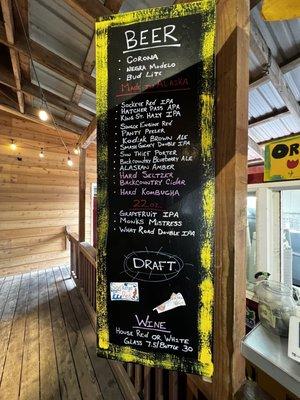 BEER
- CORONA
- NEGRA MODELO
- BUD LITE
MADE IN ALASKA
- SOCKEYE RED IPA
- HATCHER PASS APA
- KING ST. HAZY IPA
- SMOKE ENGINE RED
- PANTY PEELER
- KODIAK BROWN ALE
- SMASH GALAXY DOUBLE IPA
- SUN THIEF AMBER
- BACKCOUNTRY BLUEBERRY ALE
- ALASKAN AMBER
- HARD SELTZER
- BACKCOUNTRY CIDAR
- HARD KOMBUCHA
22oz
- GRAPEFRUIT IPA
- MONKS MISTRESS
- WHAT ROAD DOUBLE IPA
DRAFT
WINE
HOUSE RED OR WHITE
GLASS 7.5/BOTTLE 30